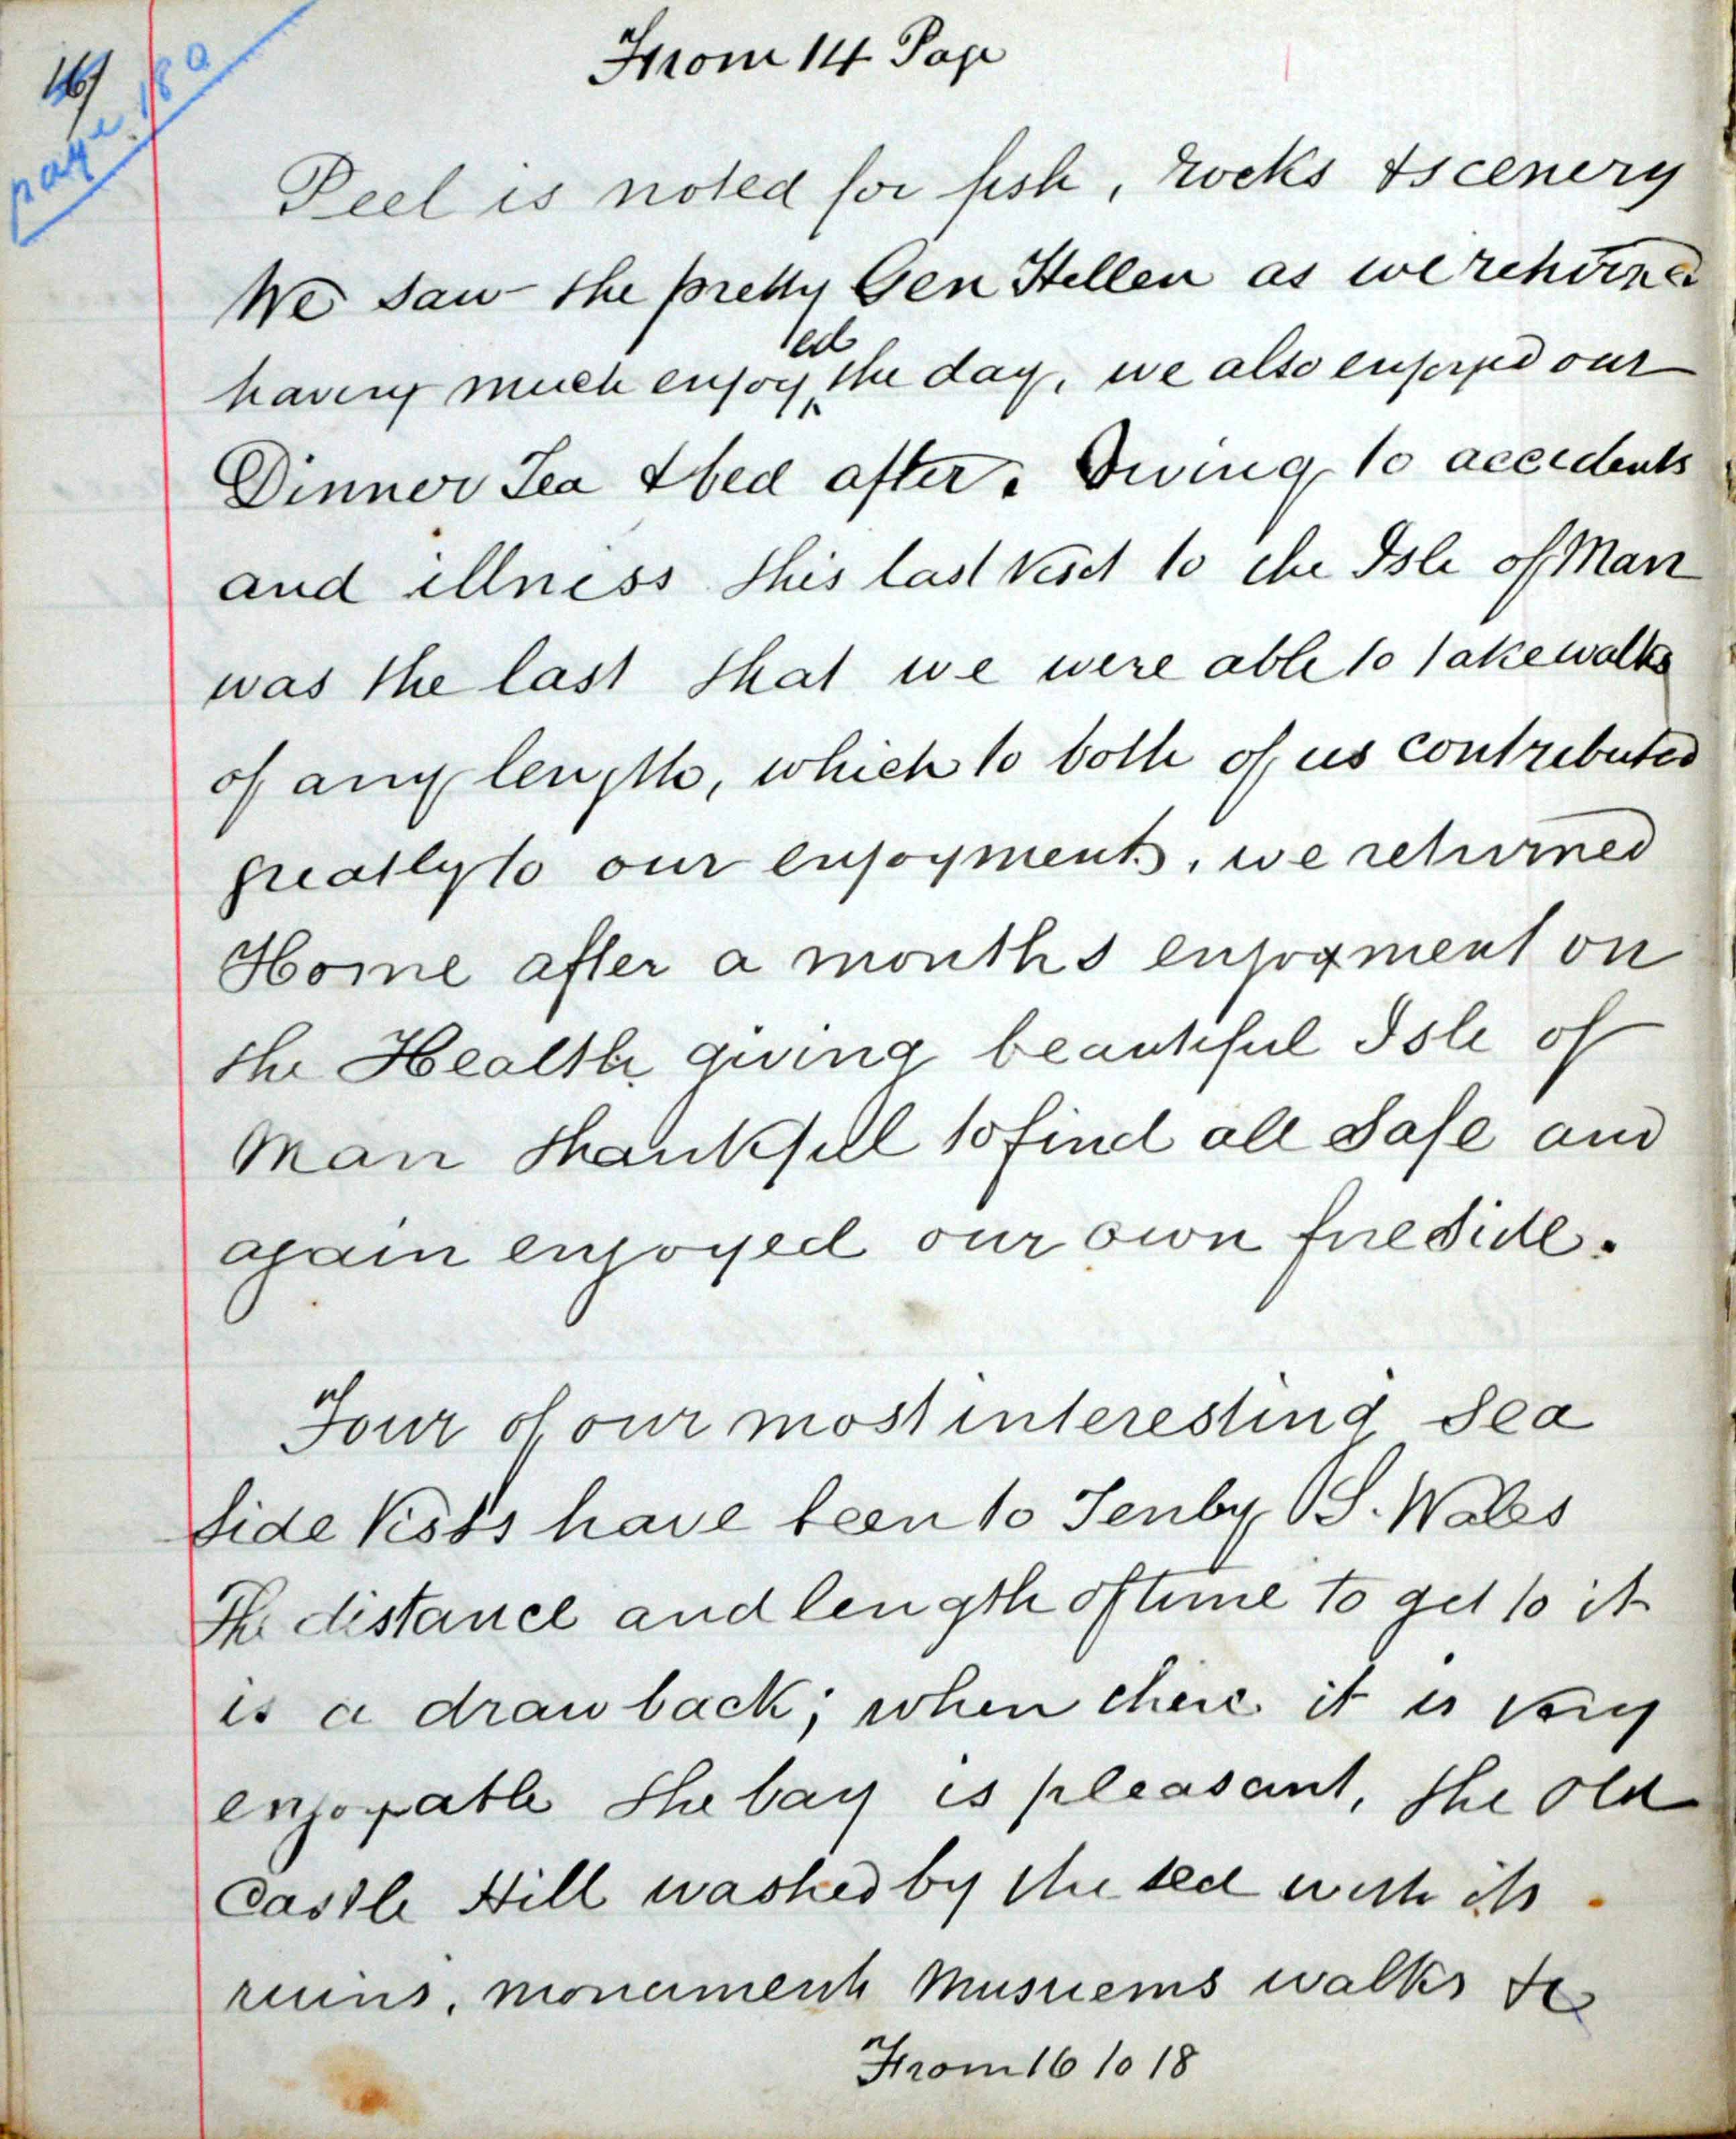 16
page 18a
From 14 Page
Peel is noted for fish, rocks & scenery
We saw the pretty Gen Hellen as we returned
having much enjoyed the day, we also enjoyed our
Dinner Tea & bed after. Owing to accidents
and illness this last visit to the Isle of Man
was the last that we were able to take walks
of any length, which to both of us contributed
greatly to our enjoyment, we returned
Home after a months enjoyment on
the Health giving beautiful Isle of
Man thankful to find all safe and
again enjoyed our own fireside.
Four of our most interesting Sea
Side Visits have been to Tenby S. Wales
The distance and length of time to get to it
is a draw back; when there it is very
enjoyable the bay is pleasant, the old
Castle Hill washed by the sea with its
ruins, monument Musuems walks &c
From 16 to 18